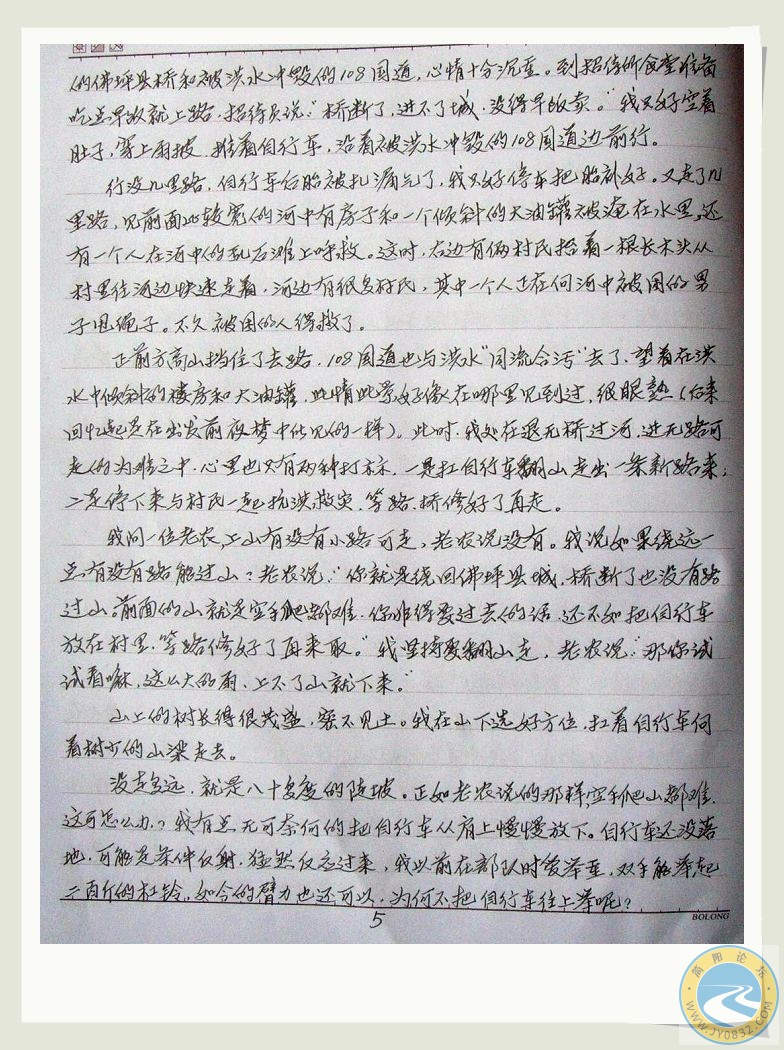 的佛坪县桥和被洪水冲毁的108国道，心情十分沉重。到招待所食堂准备
吃点早饭就上路，招待员说：“桥断了，进不了城，没得早饭卖。”我只好空着
肚子，穿上雨披，推着自行车，沿着被洪水冲毁的108国道边前行。
行没几里路，自行车后胎被扎漏气了，我只好停车把胎补好。又走了几
里路，见前面比较宽的河中有房子和一个倾斜的大油罐被淹在水里，还
有一个人在河中的乱石滩上呼救。这时，右边有俩村民抬着一根长木头从
村里往河边快速走着，河边有很多村民，其中一个人正在向河中被困的男
子甩绳子。不久被困的人得救了。
正前方高山挡住了去路，108国道也与洪水“同流合污”去了，望着在洪
水中倾斜的楼房和大油罐，此情此景好像在哪里见到过，很眼熟（后来
回忆起是在出发前夜梦中所见的一样）。此时，我处在退无桥过河，进无路可
走的为难之中，心里也只有两种打算，一是扛自行车翻山走出一条新路来；
二是停下来与村民一起抗洪救灾，等路、桥修好了再走。
我问一位老农，上山有没有小路可走，老农说没有。我说如果绕远一
点有没有路能过山？老农说：“你就是绕回佛坪县城，桥断了也没有路
过山。前面的山就是空手爬都难，你非得要过去的话，还不如把自行车
放在村里，等路修好了再来取。”我坚持要翻山走，老农说：“那你试
试看嘛，这么大的雨，上不了山就下来。”
山上的树长得很茂盛，密不见土。我在山下选好方位，扛着自行车向
着树少的山梁走去。
没走多远，就是八十多度的陡坡。正如老农说的那样，空手爬山都难，
这可怎么办？我有点无可奈何的把自行车从肩上慢慢放下。自行车还没落
地，可能是条件反射，猛然反应过来，我以前在部队时爱举重，双手能举起
二百斤的杠铃，如今的臂力也还可以，为何不把自行车往上举呢？
BOLONG
5
简阳论坛
WWW.JY0832.COM